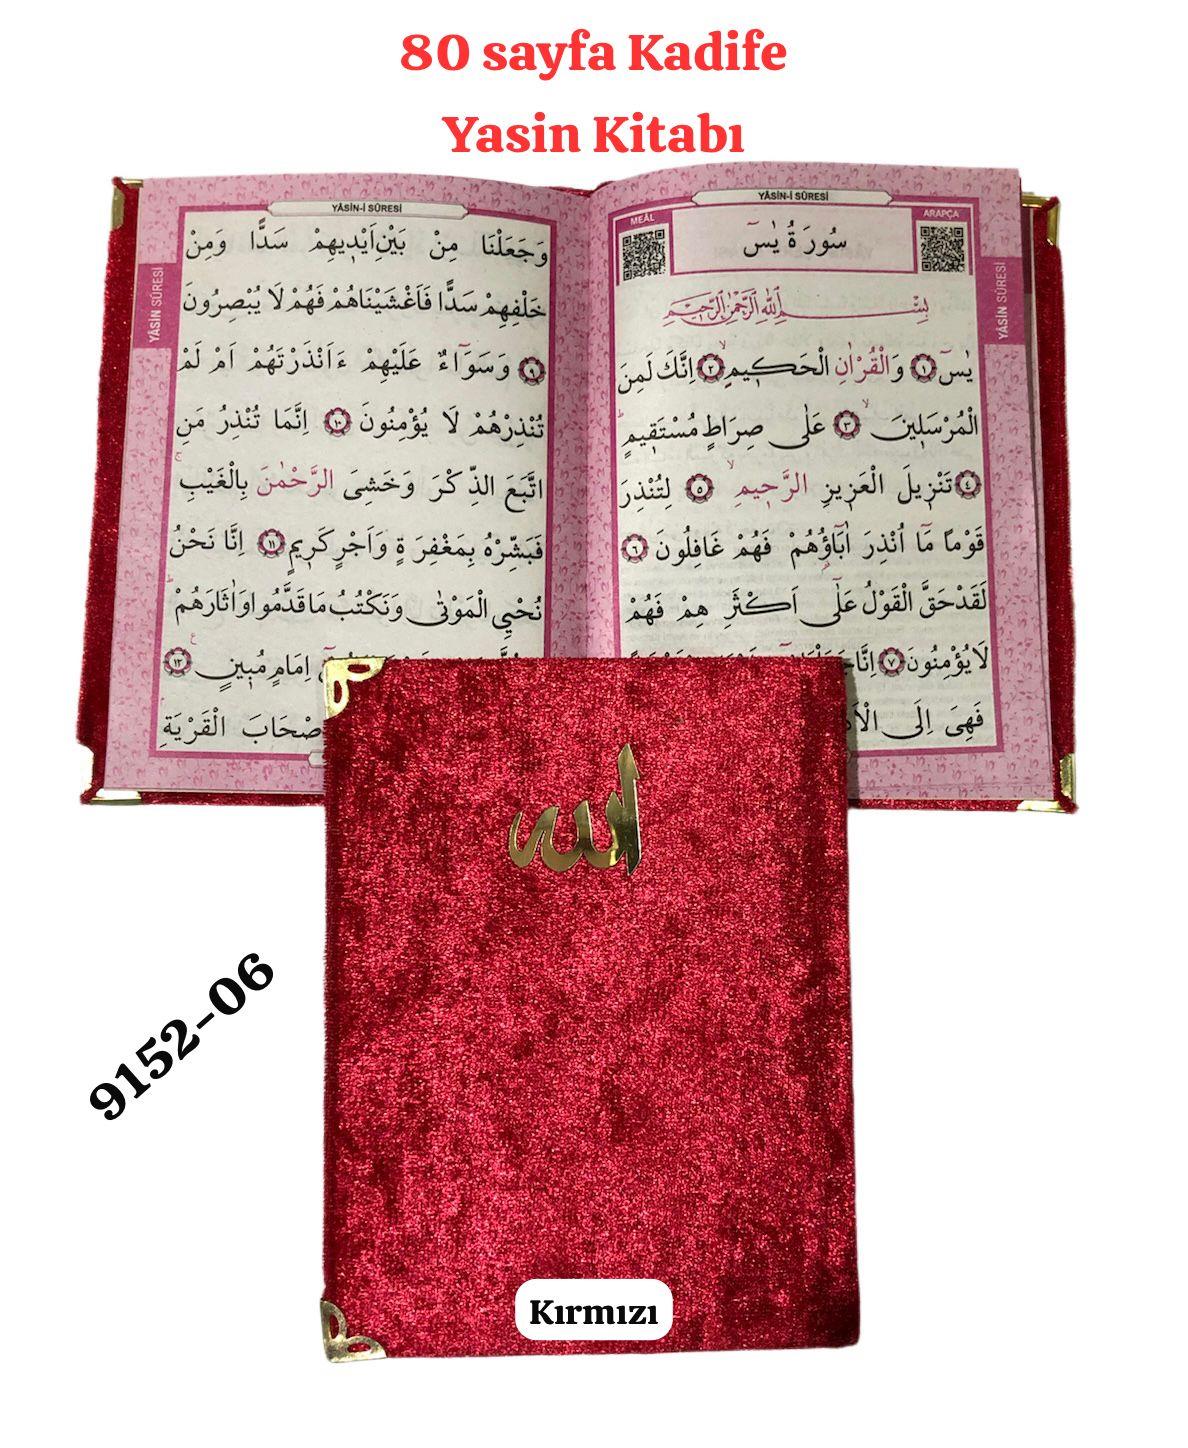 80 sayfa Kadife
Yasin Kitabı
YÂSİN-İ SÛRESİ
MEÂL
ARAPÇA
سُورَةُ يٰسٓ
بِسْمِ اللّٰهِ الرَّحْمٰنِ الرَّحِيمِ
يٰسٓ ﴿١﴾ وَالْقُرْاٰنِ الْحَكِيمِ ﴿٢﴾ اِنَّكَ لَمِنَ
الْمُرْسَلِينَ ﴿٣﴾ عَلٰى صِرَاطٍ مُسْتَقِيمٍ
﴿٤﴾ تَنْزِيلَ الْعَزِيزِ الرَّحِيمِ ﴿٥﴾ لِتُنْذِرَ
قَوْمًا مَٓا اُنْذِرَ اٰبَٓاؤُ۬هُمْ فَهُمْ غَافِلُونَ ﴿٦﴾
لَقَدْ حَقَّ الْقَوْلُ عَلٰٓى اَكْثَرِ هِمْ فَهُمْ
لَا يُؤْمِنُونَ ﴿٧﴾ اِنَّا
فَهِىَ اِلَى
YÂSİN SÛRESİ
YÂSİN-İ SÛRESİ
وَجَعَلْنَا مِنْ بَيْنِ اَيْدِيهِمْ سَدًّا وَمِنْ
خَلْفِهِمْ سَدًّا فَاَغْشَيْنَاهُمْ فَهُمْ لَا يُبْصِرُونَ
﴿٩﴾ وَسَوَٓاءٌ عَلَيْهِمْ ءَاَنْذَرْتَهُمْ اَمْ لَمْ
تُنْذِرْهُمْ لَا يُؤْمِنُونَ ﴿١٠﴾ اِنَّمَا تُنْذِرُ مَنِ
اتَّبَعَ الذِّكْرَ وَخَشِىَ الرَّحْمٰنَ بِالْغَيْبِ
فَبَشِّرْهُ بِمَغْفِرَةٍ وَاَجْرٍ كَرِيمٍ ﴿١١﴾ اِنَّا نَحْنُ
نُحْيِ الْمَوْتٰى وَنَكْتُبُ مَا قَدَّمُوا وَاٰثَارَهُمْ
اِمَامٍ مُبِينٍ ﴿١٢﴾
صْحَابَ الْقَرْيَةِ
YÂSİN SÛRESİ
الله
9152-06
Kırmızı